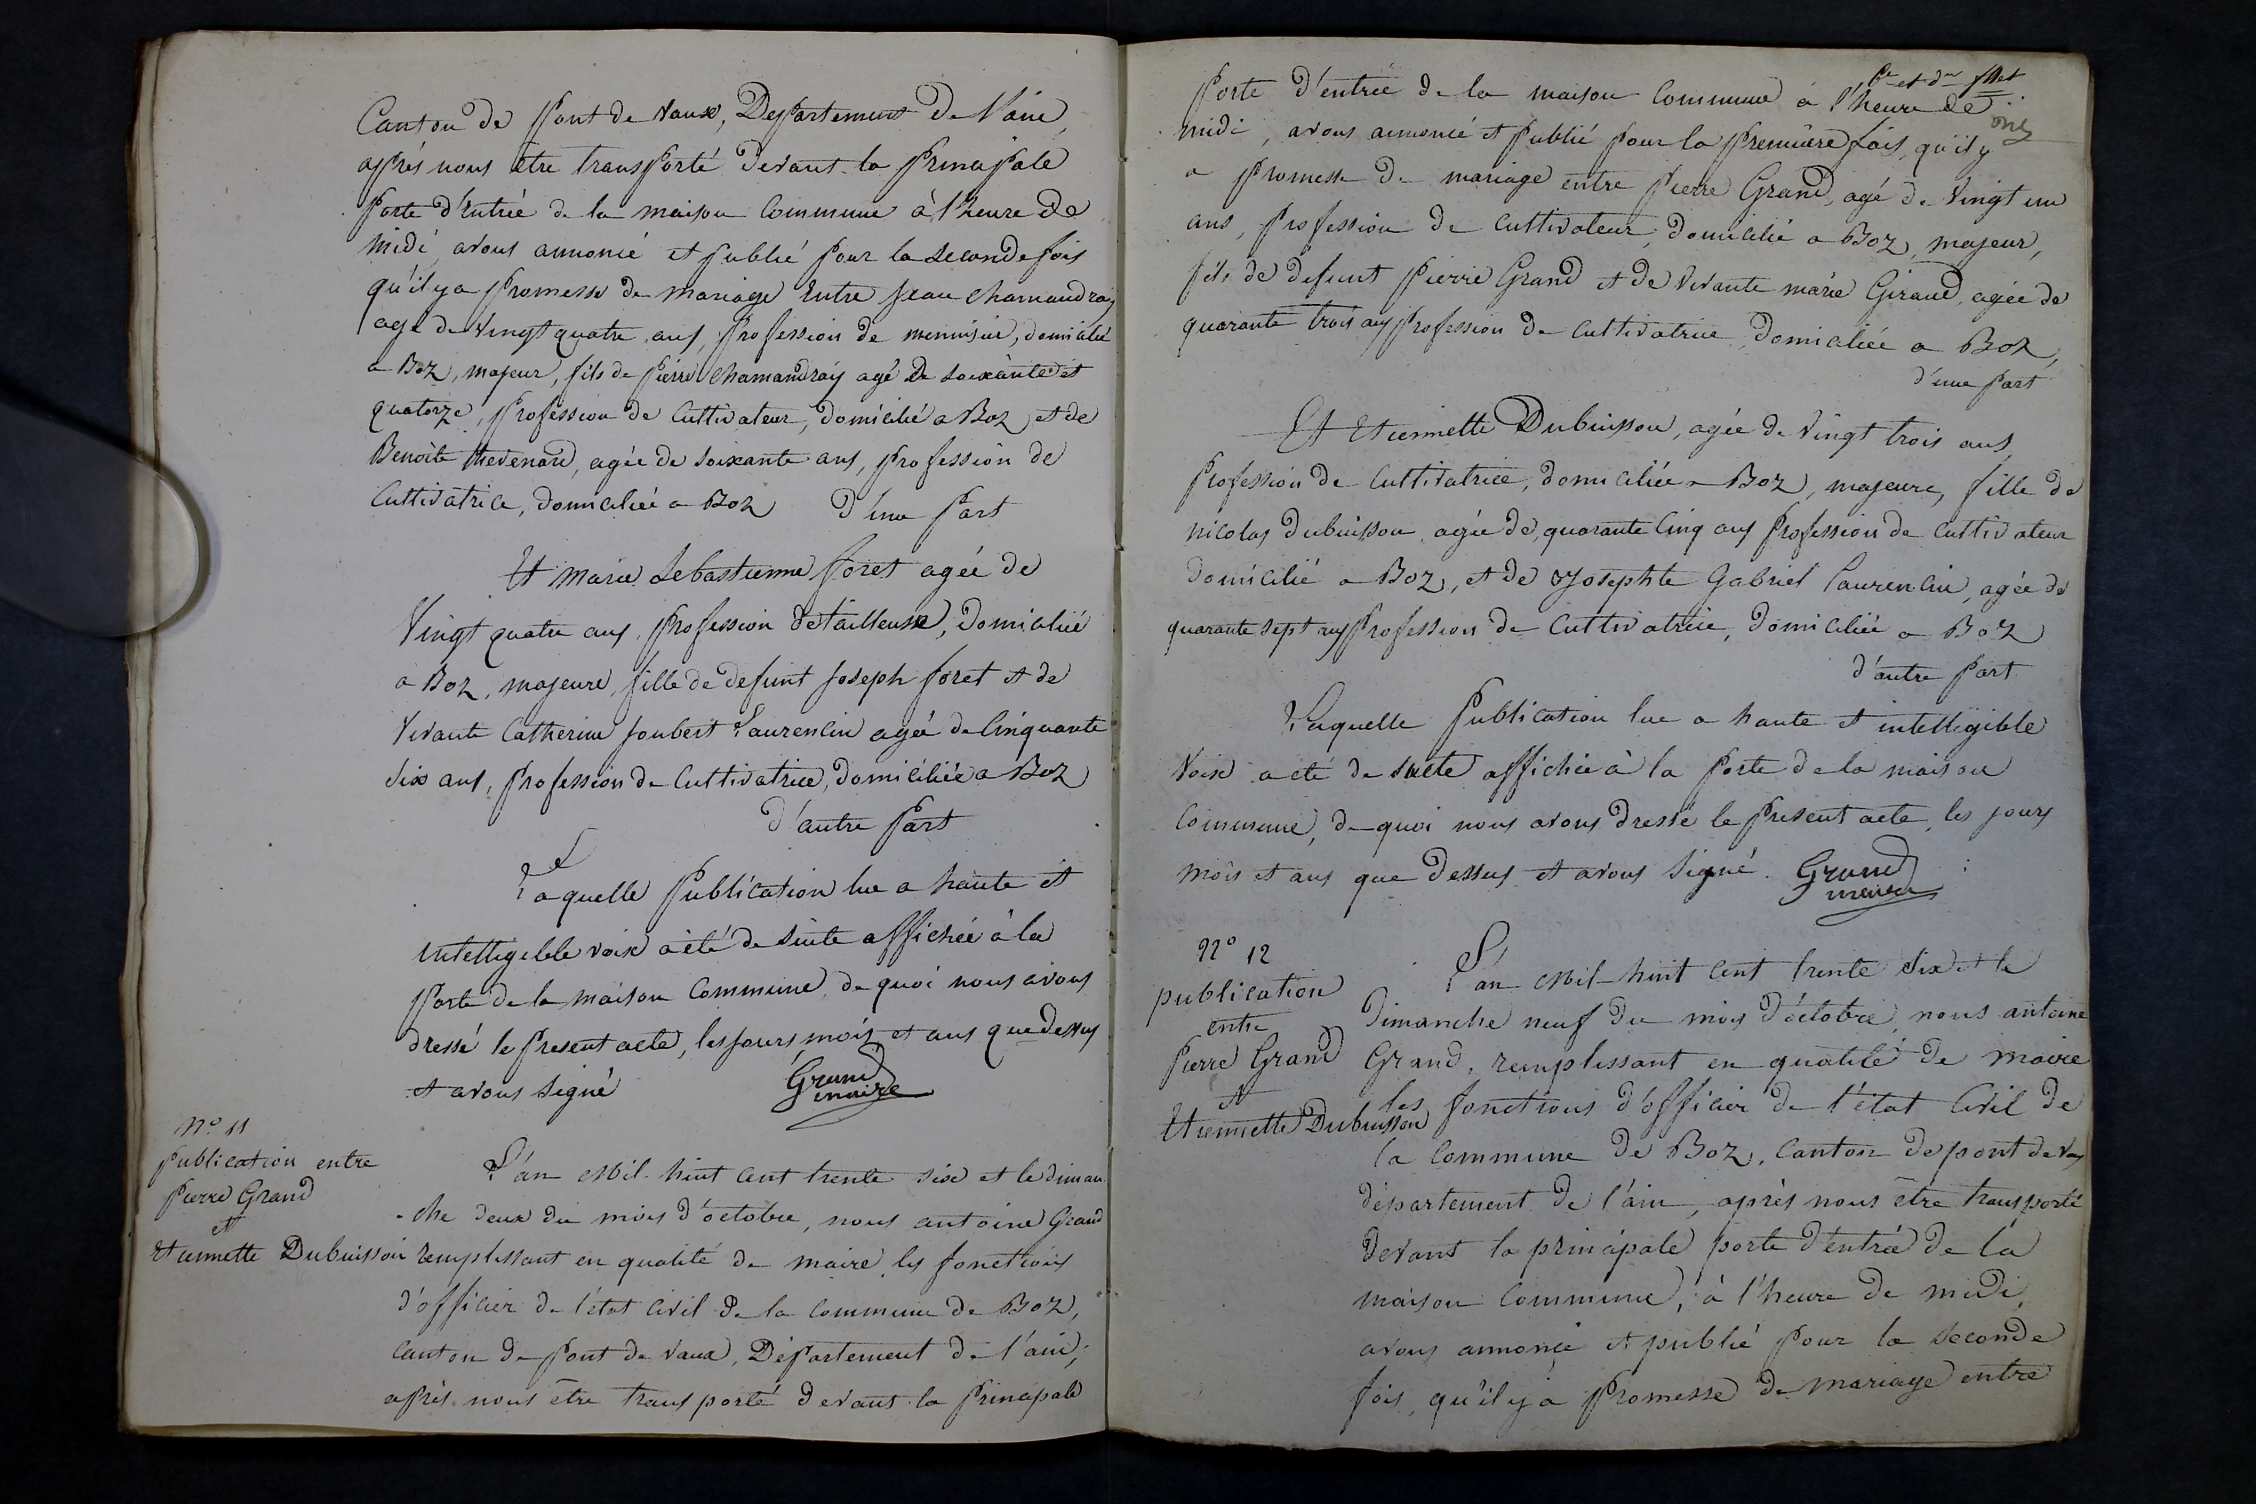 Canton de Pont de Vaux, Departement De l'ain,
après nous être transporté Devant la Principale
Porte d'entrée de la maison Commune à l'heure de
midi, avons annoncé et publié pour la seconde fois
qu'il y a Promesse de mariage entre Jean Chamandray
agé de vingt quatre ans, Profession de menuisier, domicilié
a Boz, majeur, fils de Pierre Chamandray agé de soixante et
quatorze, Profession de Cultivateur, domicilié a Boz et de
Benoite thevenard, agée de soixante ans, profession de
Cultivatrice, domiciliée a Boz d'une Part
Et marie Sebastienne foret agée de
Vingt quatre ans, Profession de tailleuse, Domiciliée
a Boz, majeure, fille de defunt Joseph foret et de
Vivante Catherine Joubert Laurencin agée de Cinquante
Six ans, Profession de Cultivatrice, domiciliée a Boz
d'autre Part
Laquelle Publication lue a haute et
intelligible voix a été de suite affichée à la
Porte de la maison Commune, de quoi nous avons
dressé le Present acte, les jours, mois et ans que Dessus
et avons Signé Grand
maire
N° 11
Publication entre
Pierre Grand
et
Etiennette Dubuisson
L'an Mil huit cent trente six et le diman
-che deux du mois d'octobre, nous antoine Grand
remplissant en qualité de maire les fonctions
d'officier de l'état Civil de la Commune de Boz,
Canton de Pont de Vaux, Département de l'ain,
après nous être transporté devant la Principale
Porte d'entrée de la maison Commune à l'heure de
midi, avons annoncé et publié pour la Première fois, qu'il y
a Promesse de mariage entre Pierre Grand, agé de Vingt un
ans, Profession de Cultivateur, domicilié a Boz, majeur,
fils de defunt Pierre Grand et de Vivante marie Giraud, agée de
quarante trois ans Profession de Cultivatrice, Domiciliée a Boz,
d'une Part
Et Etiennette Dubuisson, agée de Vingt trois ans,
Profession de Cultivatrice, domiciliée a Boz, majeure, fille de
nicolas Dubuisson, agée de, quarante Cinq ans Profession de Cultivateur
domicilié a Boz, et de Josephte Gabriel Laurencin, agée de
quarante sept ans Profession de Cultivatrice, Domiciliée a Boz
d'autre Part
Laquelle Publication lue a haute et intelligible
Voix a été de suite affichée à la Porte de la maison
Commune, de quoi nous avons Dressé le Present acte, les jours
mois et ans que Dessus et avons Signé. Grand
maire
N° 12
publication
entre
Pierre Grand
et
Etiennette Dubuisson
L'an Mil huit Cent trente Six et le
Dimanche neuf du mois d'octobre, nous antoine
Grand, remplissant en qualité de maire
les fonctions d'officier de l'état Civil de
la Commune de Boz, Canton de pont de Vaux
département de l'ain, après nous être transporté
Devant la principale porte d'entrée de la
maison Commune, à l'heure de midi,
avons annoncé et publié pour la seconde
fois, qu'il y a Promesse de mariage entre